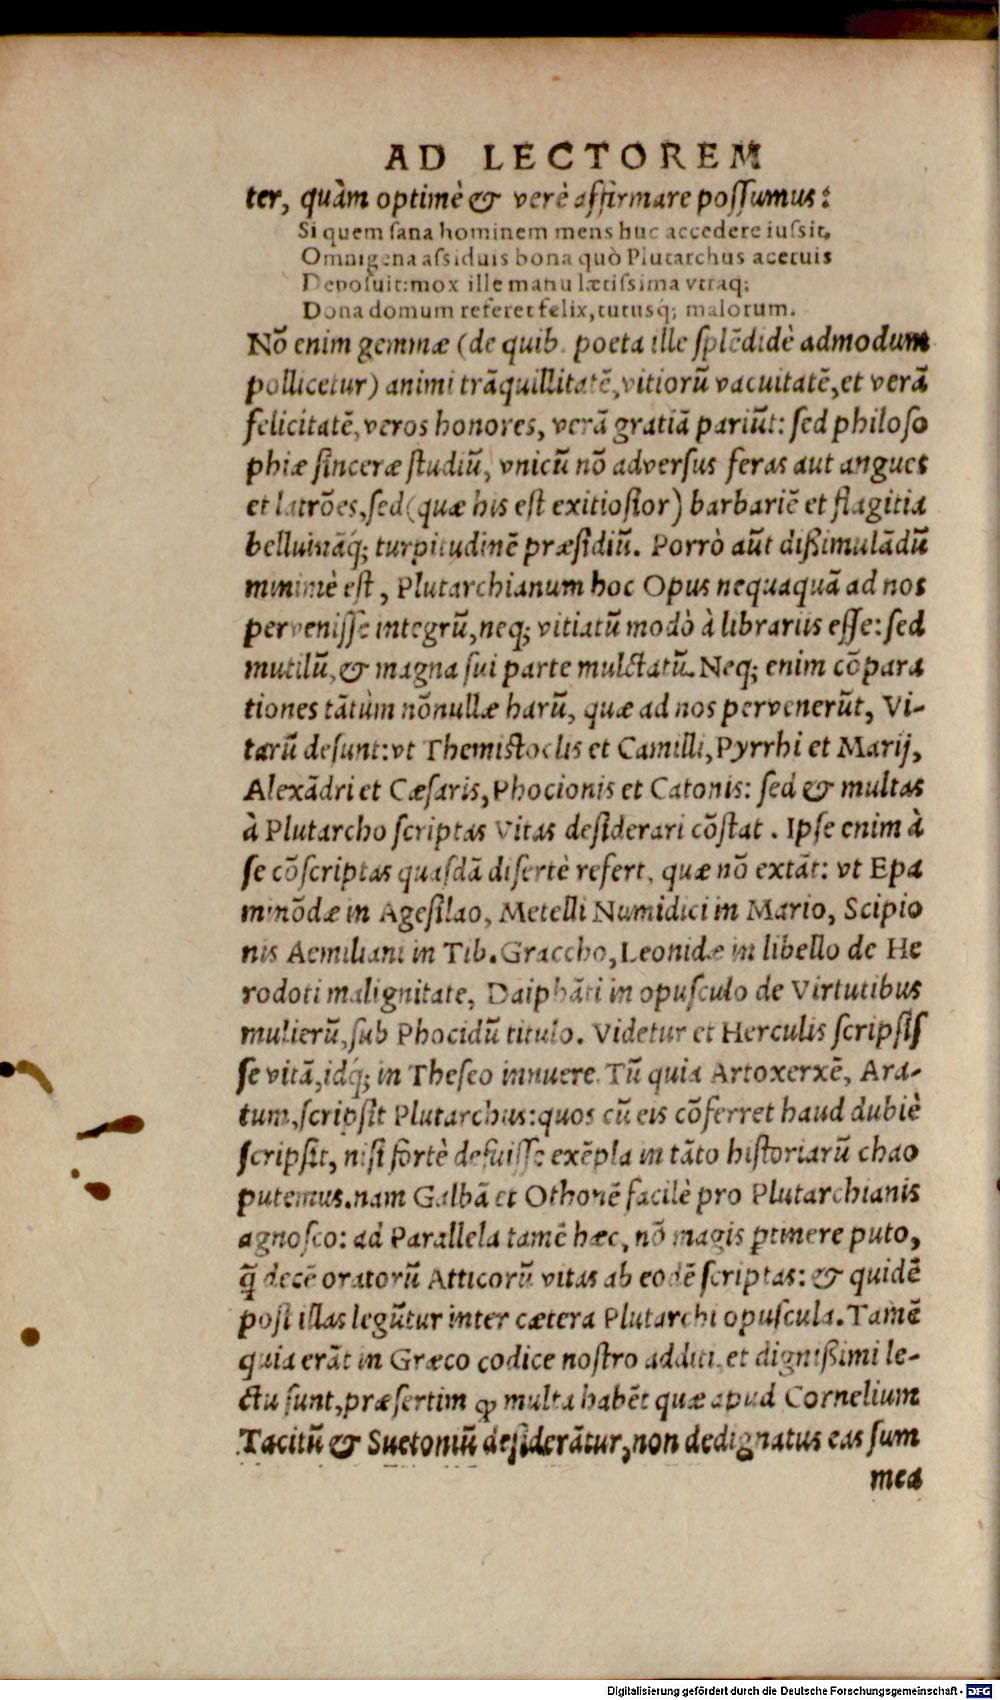 AD LECTOREM
ter, quàm optimè & verè affirmare possumus:
Si quem sana hominem mens huc accedere iussit,
Omnigena assiduis bona quò Plutarchus aceruis
Deposuit: mox ille manu lætissima vtraq;
Dona domum referet felix, tutusq́; malorum.
Nõ enim gemmæ (de quib. poeta ille splẽdidè admodum
pollicetur) animi trãquillitatẽ, vitiorũ vacuitatẽ, et verã
felicitatẽ, veros honores, verã gratiã pariũt: sed philoso
phiæ sinceræ studiũ, vnicũ nõ adversus feras aut angues
et latrões, sed (quæ his est exitiosior) barbariẽ et flagitia
belluinãq́; turpitudinẽ præsidiũ. Porrò aũt dißimulãdũ
minimè est, Plutarchianum hoc Opus nequaquã ad nos
pervenisse integrũ, neq; vitiatũ modò à librariis esse: sed
mutilũ, & magna sui parte mulctatũ. Neq; enim cõpara
tiones tãtùm nõnullæ harũ, quæ ad nos pervenerũt, Vi-
tarũ desunt: vt Themistoclis et Camilli, Pyrrhi et Marij,
Alexãdri et Cæsaris, Phocionis et Catonis: sed & multas
à Plutarcho scriptas Vitas desiderari cõstat. Ipse enim à
se cõscriptas quasdã disertè refert, quæ nõ extãt: vt Epa
minõdæ in Agesilao, Metelli Numidici in Mario, Scipio
nis Aemiliani in Tib. Graccho, Leonidæ in libello de He
rodoti malignitate, Daiphãti in opusculo de Virtutibus
mulierũ, sub Phocidũ titulo. Videtur et Herculis scripsis
se vitã, idq́; in Theseo innuere. Tũ quia Artoxerxẽ, Ara-
tum, scripsit Plutarchus: quos cũ eis cõferret haud dubiè
scripsit, nisi fortè defuisse exẽpla in tãto historiarũ chao
putemus. nam Galbã et Othonẽ facilè pro Plutarchianis
agnosco: ad Parallela tamẽ hæc, nõ magis ꝑtinere puto,
q̃ decẽ oratorũ Atticorũ vitas ab eodẽ scriptas: & quidẽ
post illas legũtur inter cætera Plutarchi opuscula. Tamẽ
quia erãt in Græco codice nostro additi, et dignißimi le-
ctu sunt, præsertim ꝙ multa habẽt quæ apud Cornelium
Tacitũ & Suetoniũ desiderãtur, non dedignatus eas sum
mea
Digitalisierung gefördert durch die Deutsche Forschungsgemeinschaft - DFG